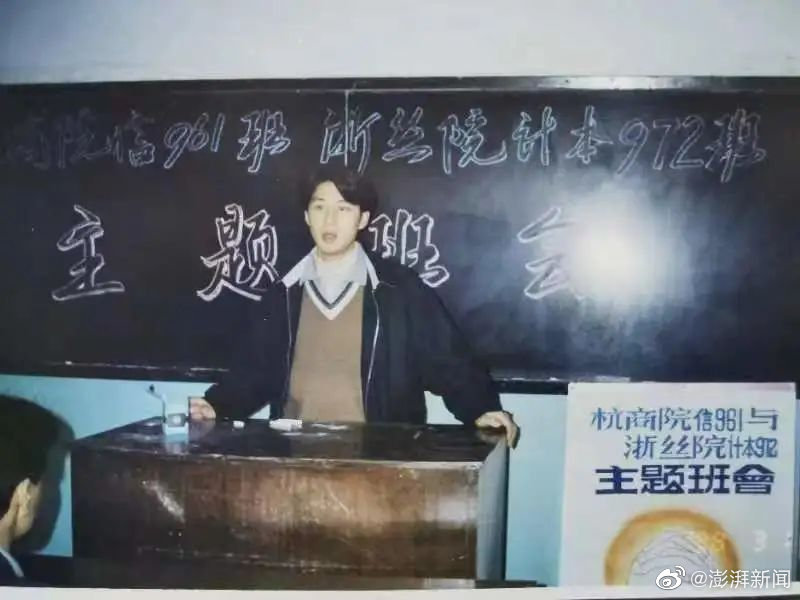 商院信961班 浙丝院计本972班
主题班会
杭商院信961与
浙丝院计本972
主题班會
98 3
@澎湃新闻